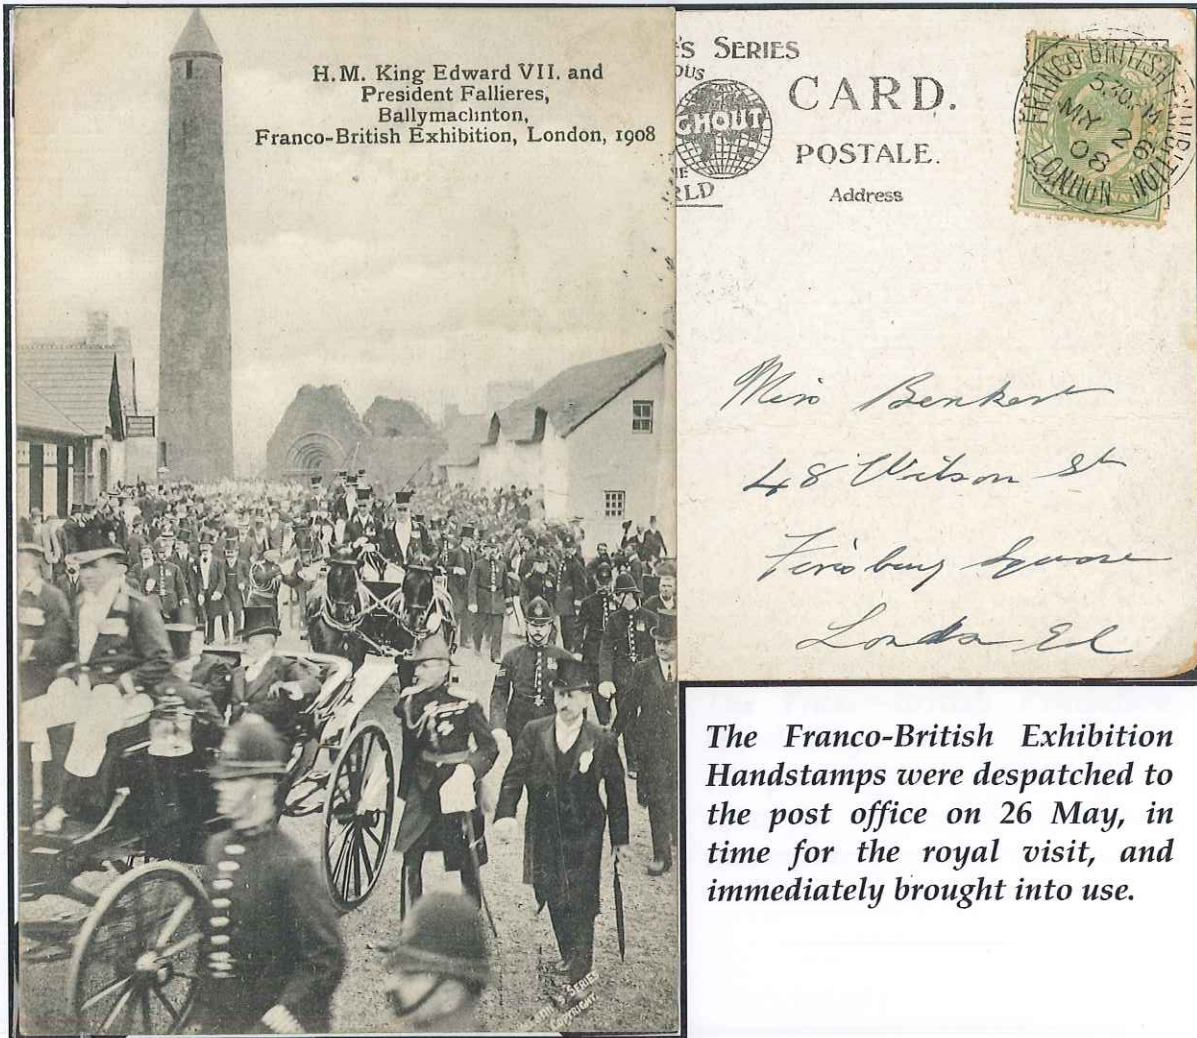 H.M. King Edward VII. and
President Fallieres,
Ballymaclinton,
Franco-British Exhibition, London, 1908
'S SERIES
OUS
GHOUT
RLD
CARD.
POSTALE.
Address
FRANCO-BRITISH EXHIBITION
5.30.PM
MY 26
08
LONDON W
Miss Benkert
48 Wilson St
Finsbury Square
London EC
SERIES
COPYRIGHT
The Franco-British Exhibition
Handstamps were despatched to
the post office on 26 May, in
time for the royal visit, and
immediately brought into use.